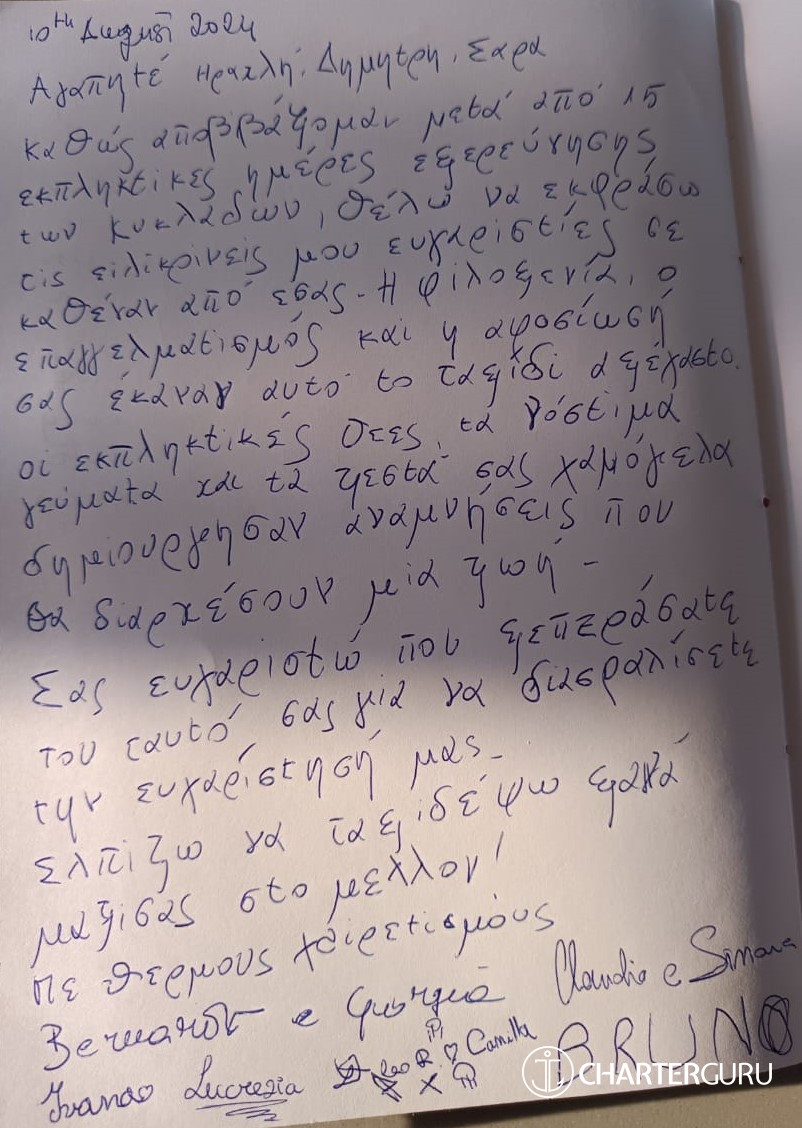 10th August 2024
Αγαπητέ Ηρακλή, Δημητρη, Σαρα
καθώς αποβιβάζομαν μετά από 15
εκπληκτικες ημέρες εξερεύνησης
των κυκλάδων, θέλω να εκφράσω
τις ειλικρινείς μου ευχαριστίες σε
καθέναν από εσας - Η φιλοξενία, ο
επαγγελματισμός και η αφοσίωσή
σας έκαναν αυτό το ταξίδι αξέχαστο.
οι εκπληκτικές θεες, τα νόστιμα
γεύματα και τα ζεστά σας χαμόγελα
δημιουργησαν αναμνήσεις που
θα διαρκέσουν μια ζωή -
Σας ευχαριστώ που ξεπεράσατε
τον εαυτό σας για να διασφαλίσετε
την ευχαρίστησή μας -
Ελπιζω να ταξιδέψω ξανά
μαζισας στο μελλον!
Με θερμους χαιρετισμούς
Bernardo e Giorgia Claudio e Simona
Ivanao Lucrezia Leo Camilla BRUNO
CHARTERGURU